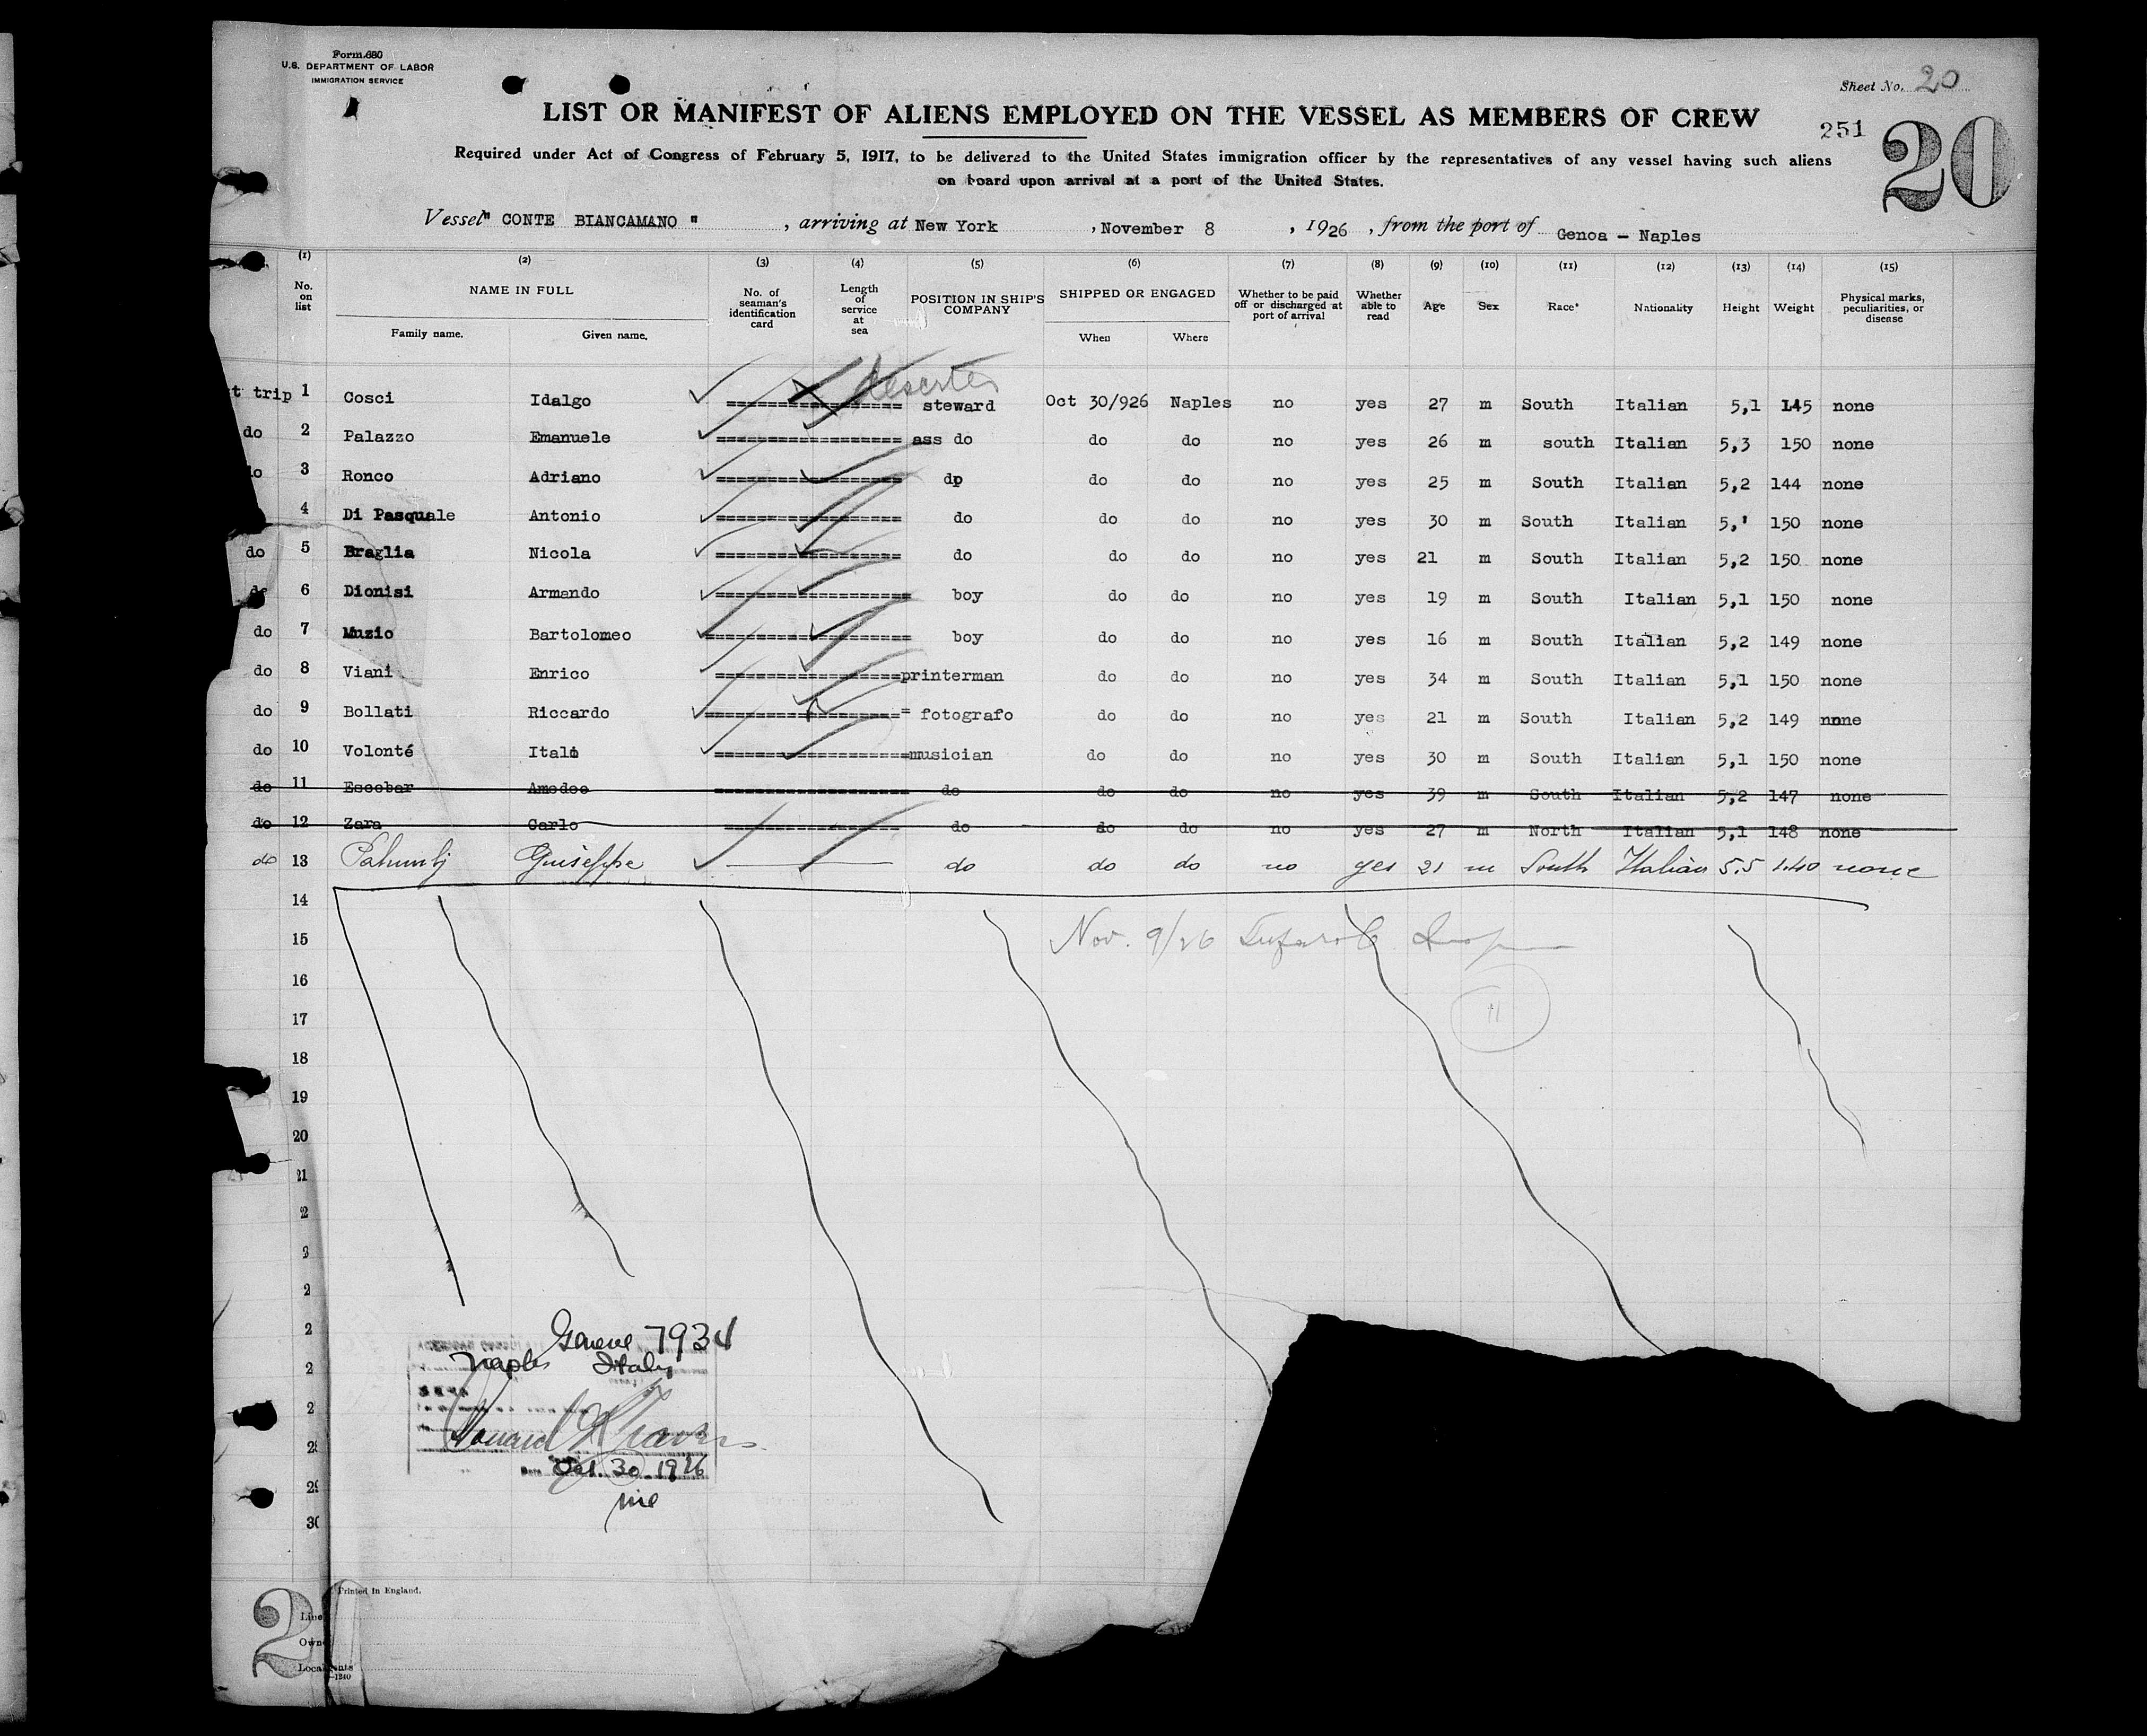 Form 680
U.S. DEPARTMENT OF LABOR
IMMIGRATION SERVICE
Sheet No. 20
LIST OR MANIFEST OF ALIENS EMPLOYED ON THE VESSEL AS MEMBERS OF CREW
251
20
Required under Act of Congress of February 5, 1917, to be delivered to the United States immigration officer by the representatives of any vessel having such aliens
on board upon arrival at a port of the United States.
Vessel " CONTE BIANCAMANO " , arriving at New York , November 8 , 1926 , from the port of Genoa - Naples
(1) (2) (3) (4) (5) (6) (7) (8) (9) (10) (11) (12) (13) (14) (15)
No. on list NAME IN FULL Family name. Given name. No. of seaman's identification card Length of service at sea POSITION IN SHIP'S COMPANY SHIPPED OR ENGAGED When Where Whether to be paid off or discharged at port of arrival Whether able to read Age Sex Race* Nationality Height Weight Physical marks, peculiarities, or disease
deserted
t trip 1 Cosci Idalgo ================== steward Oct 30/926 Naples no yes 27 m South Italian 5,1 145 none
do 2 Palazzo Emanuele =================== ass do do do no yes 26 m south Italian 5,3 150 none
do 3 Ronco Adriano =================== dp do do no yes 25 m South Italian 5,2 144 none
4 Di Pasquale Antonio =================== do do do no yes 30 m South Italian 5,' 150 none
do 5 Braglia Nicola =================== do do do no yes 21 m South Italian 5,2 150 none
do 6 Dionisi Armando ==================== boy do do no yes 19 m South Italian 5,1 150 none
do 7 Muzio Bartolomeo ===================== boy do do no yes 16 m South Italian 5,2 149 none
do 8 Viani Enrico ===================printerman do do no yes 34 m South Italian 5,1 150 none
do 9 Bollati Riccardo ==================== fotografo do do no yes 21 m South Italian 5,2 149 nnne
do 10 Volonté Italo ====================musician do do no yes 30 m South Italian 5,1 150 none
do 11 Escobar Amedeo ==================== do do do no yes 39 m South Italian 5,2 147 none
do 12 Zara Carlo ================== do do do no yes 27 m North Italian 5,1 148 none
do 13 Guiseppe do do do no yes 21 m South Italian 5.5 140 none
14
15 Nov. 9/26
16
17 11
18
19
20
21
2
2
2
2
2
2
28
29
30
7934
Naples Italy
Oct. 30 1926
Printed in England.
20
Line
Owne
Local ents
—1240